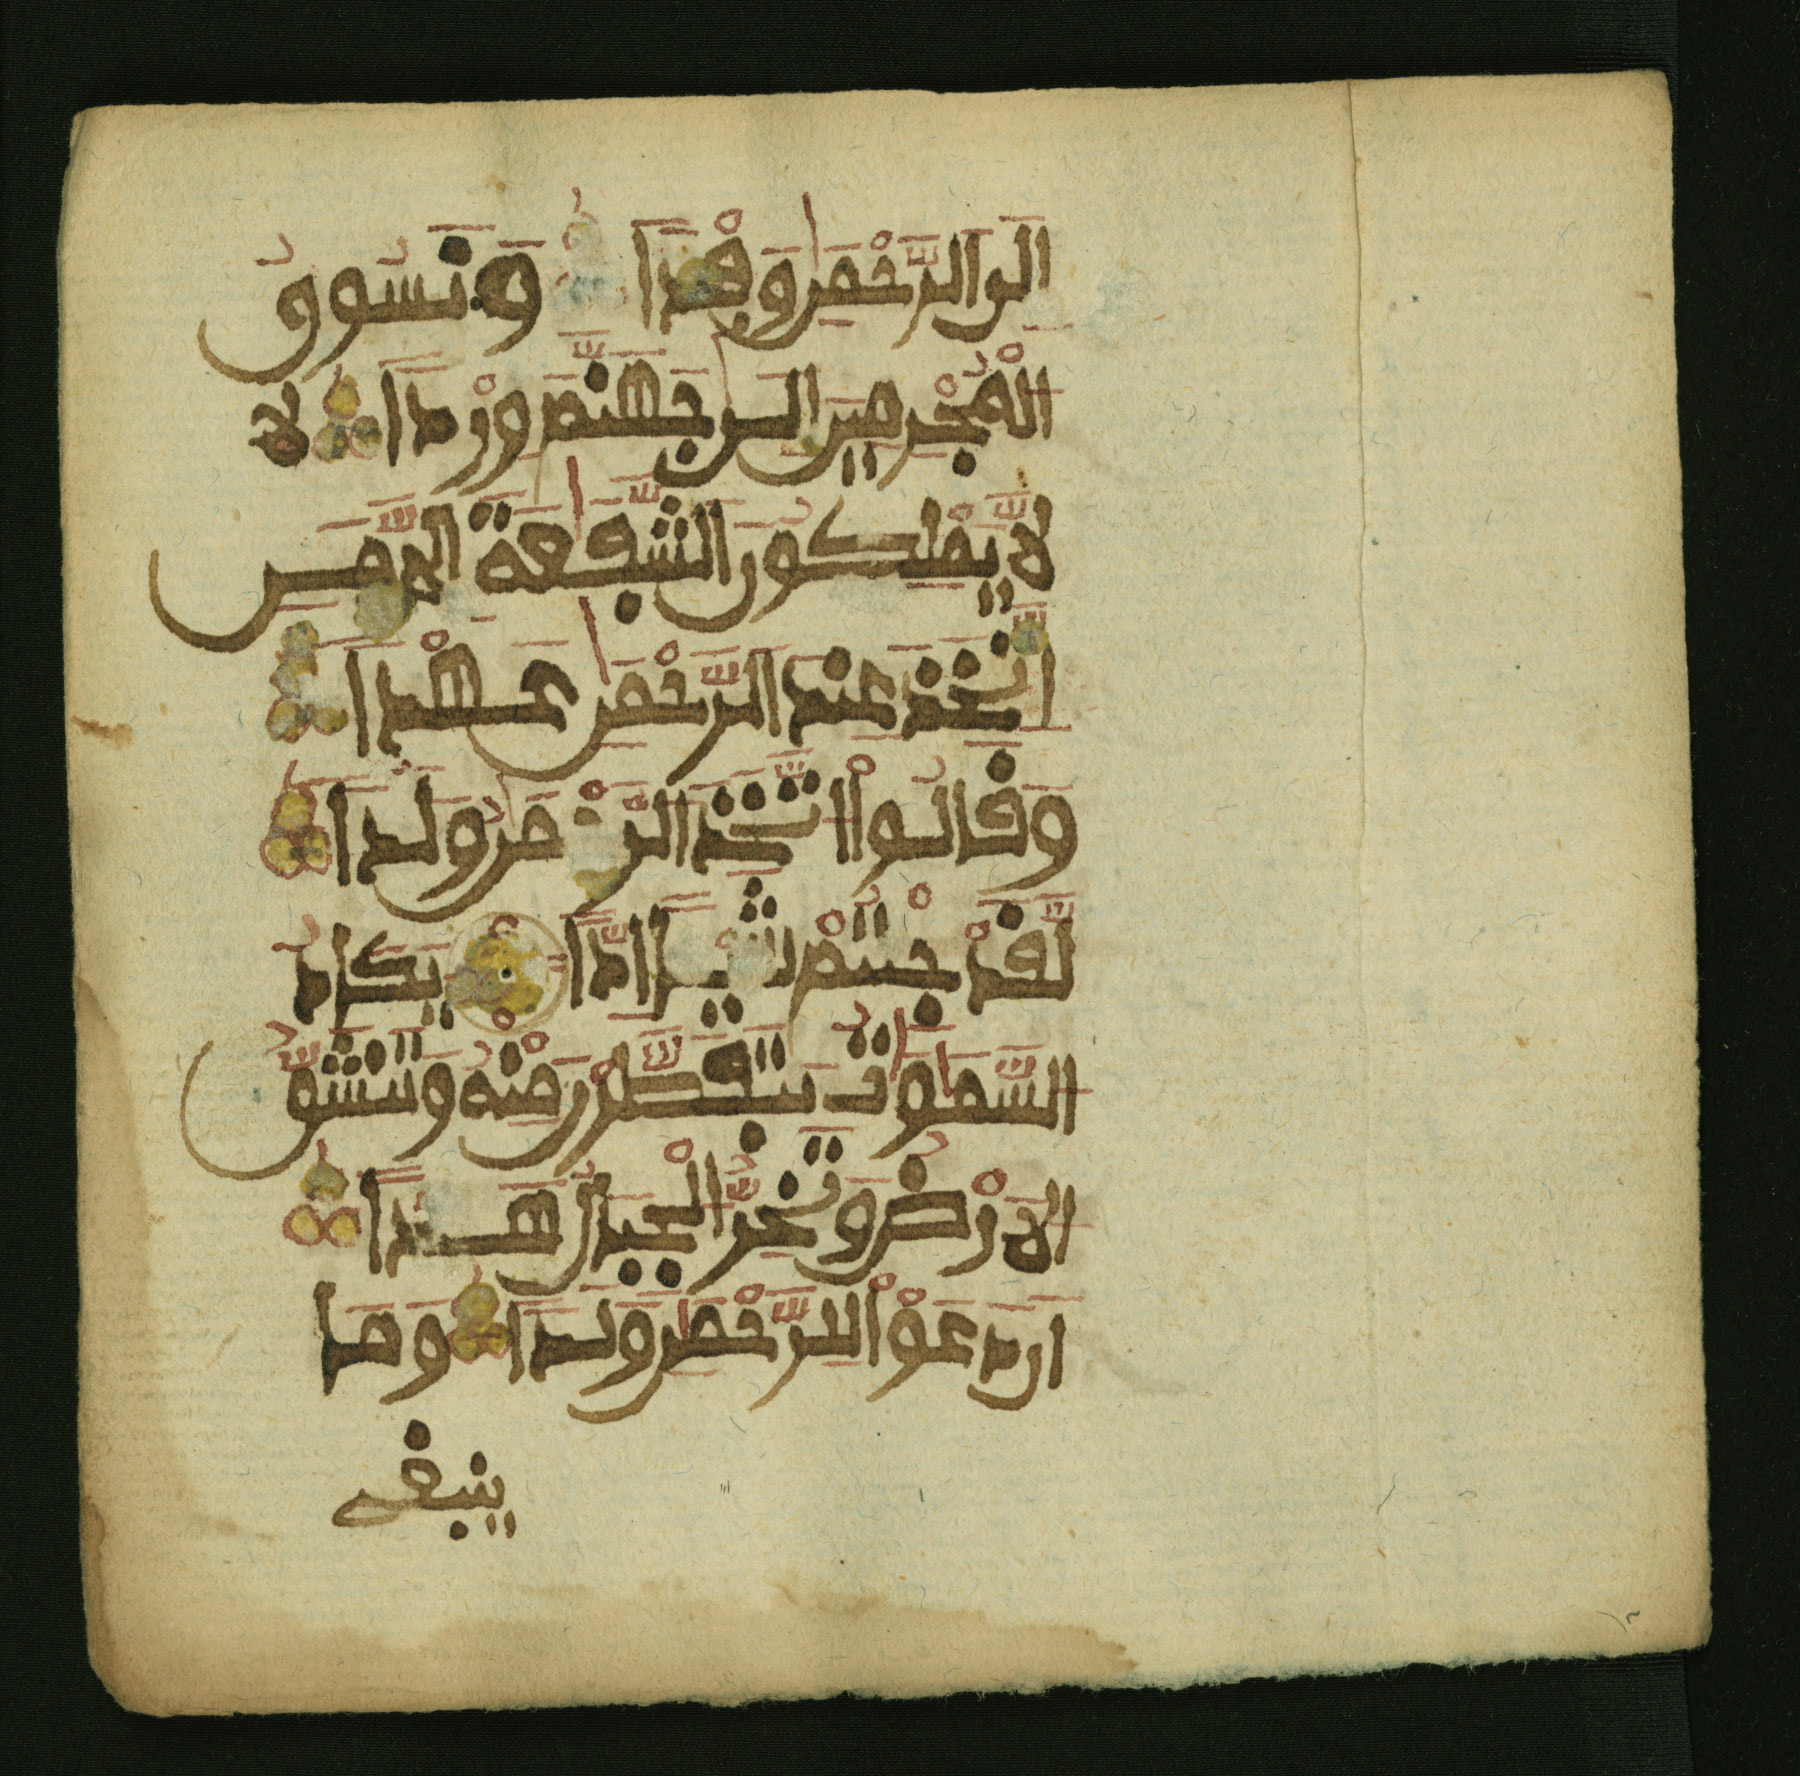 الى الرحمن وفدا ونسوق
المجرمين الى جهنم وردا لا
لا يملكون الشفعة الا من
اتخذ عند الرحمن عهدا
وقالوا اتخذ الرحمن ولدا
لقد جئتم شيئا ادا يكاد
السموت يتفطرن منه وتنشق
الارض وتخر الجبال هدا
ان دعوا للرحمن ولدا وما
ينبغي